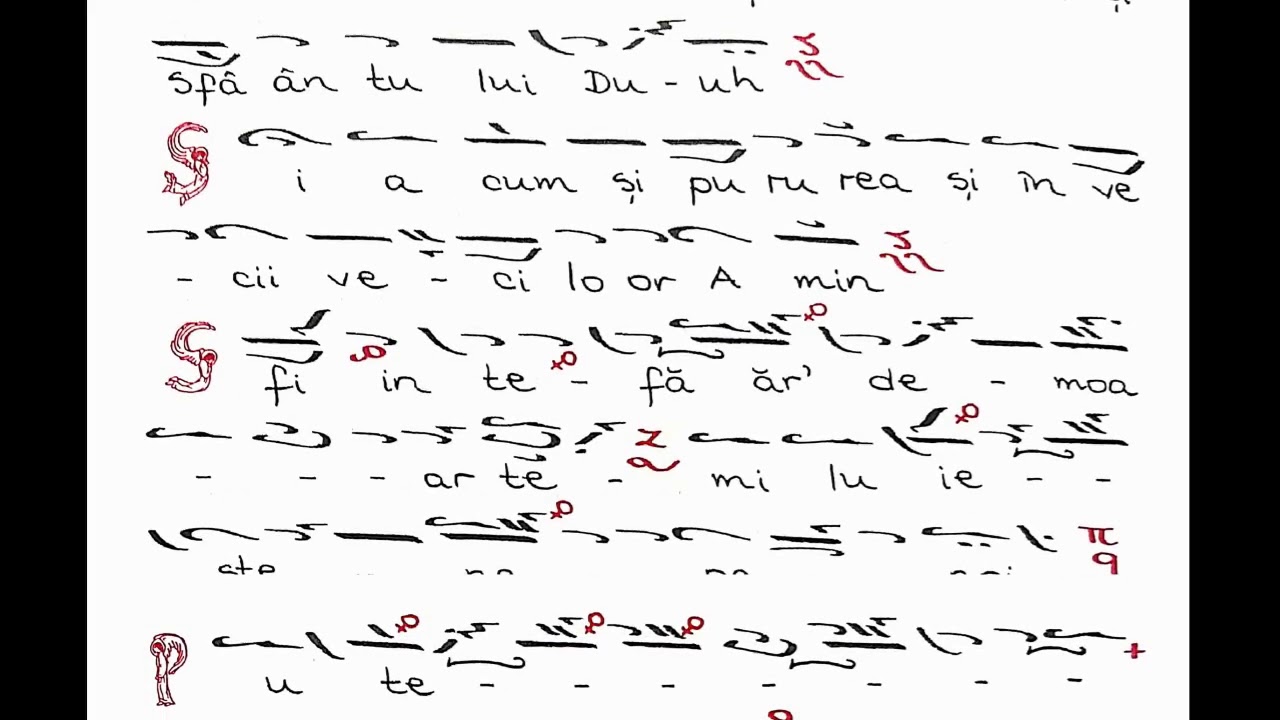 Sfâ ân tu lui Du - uh
Și a cum și pu ru rea și în ve
- cii ve - ci lo or A min
S fi in te - fă ăr' de - moa
- - - ar te - mi lu ie - -
P u te - - - - - - -